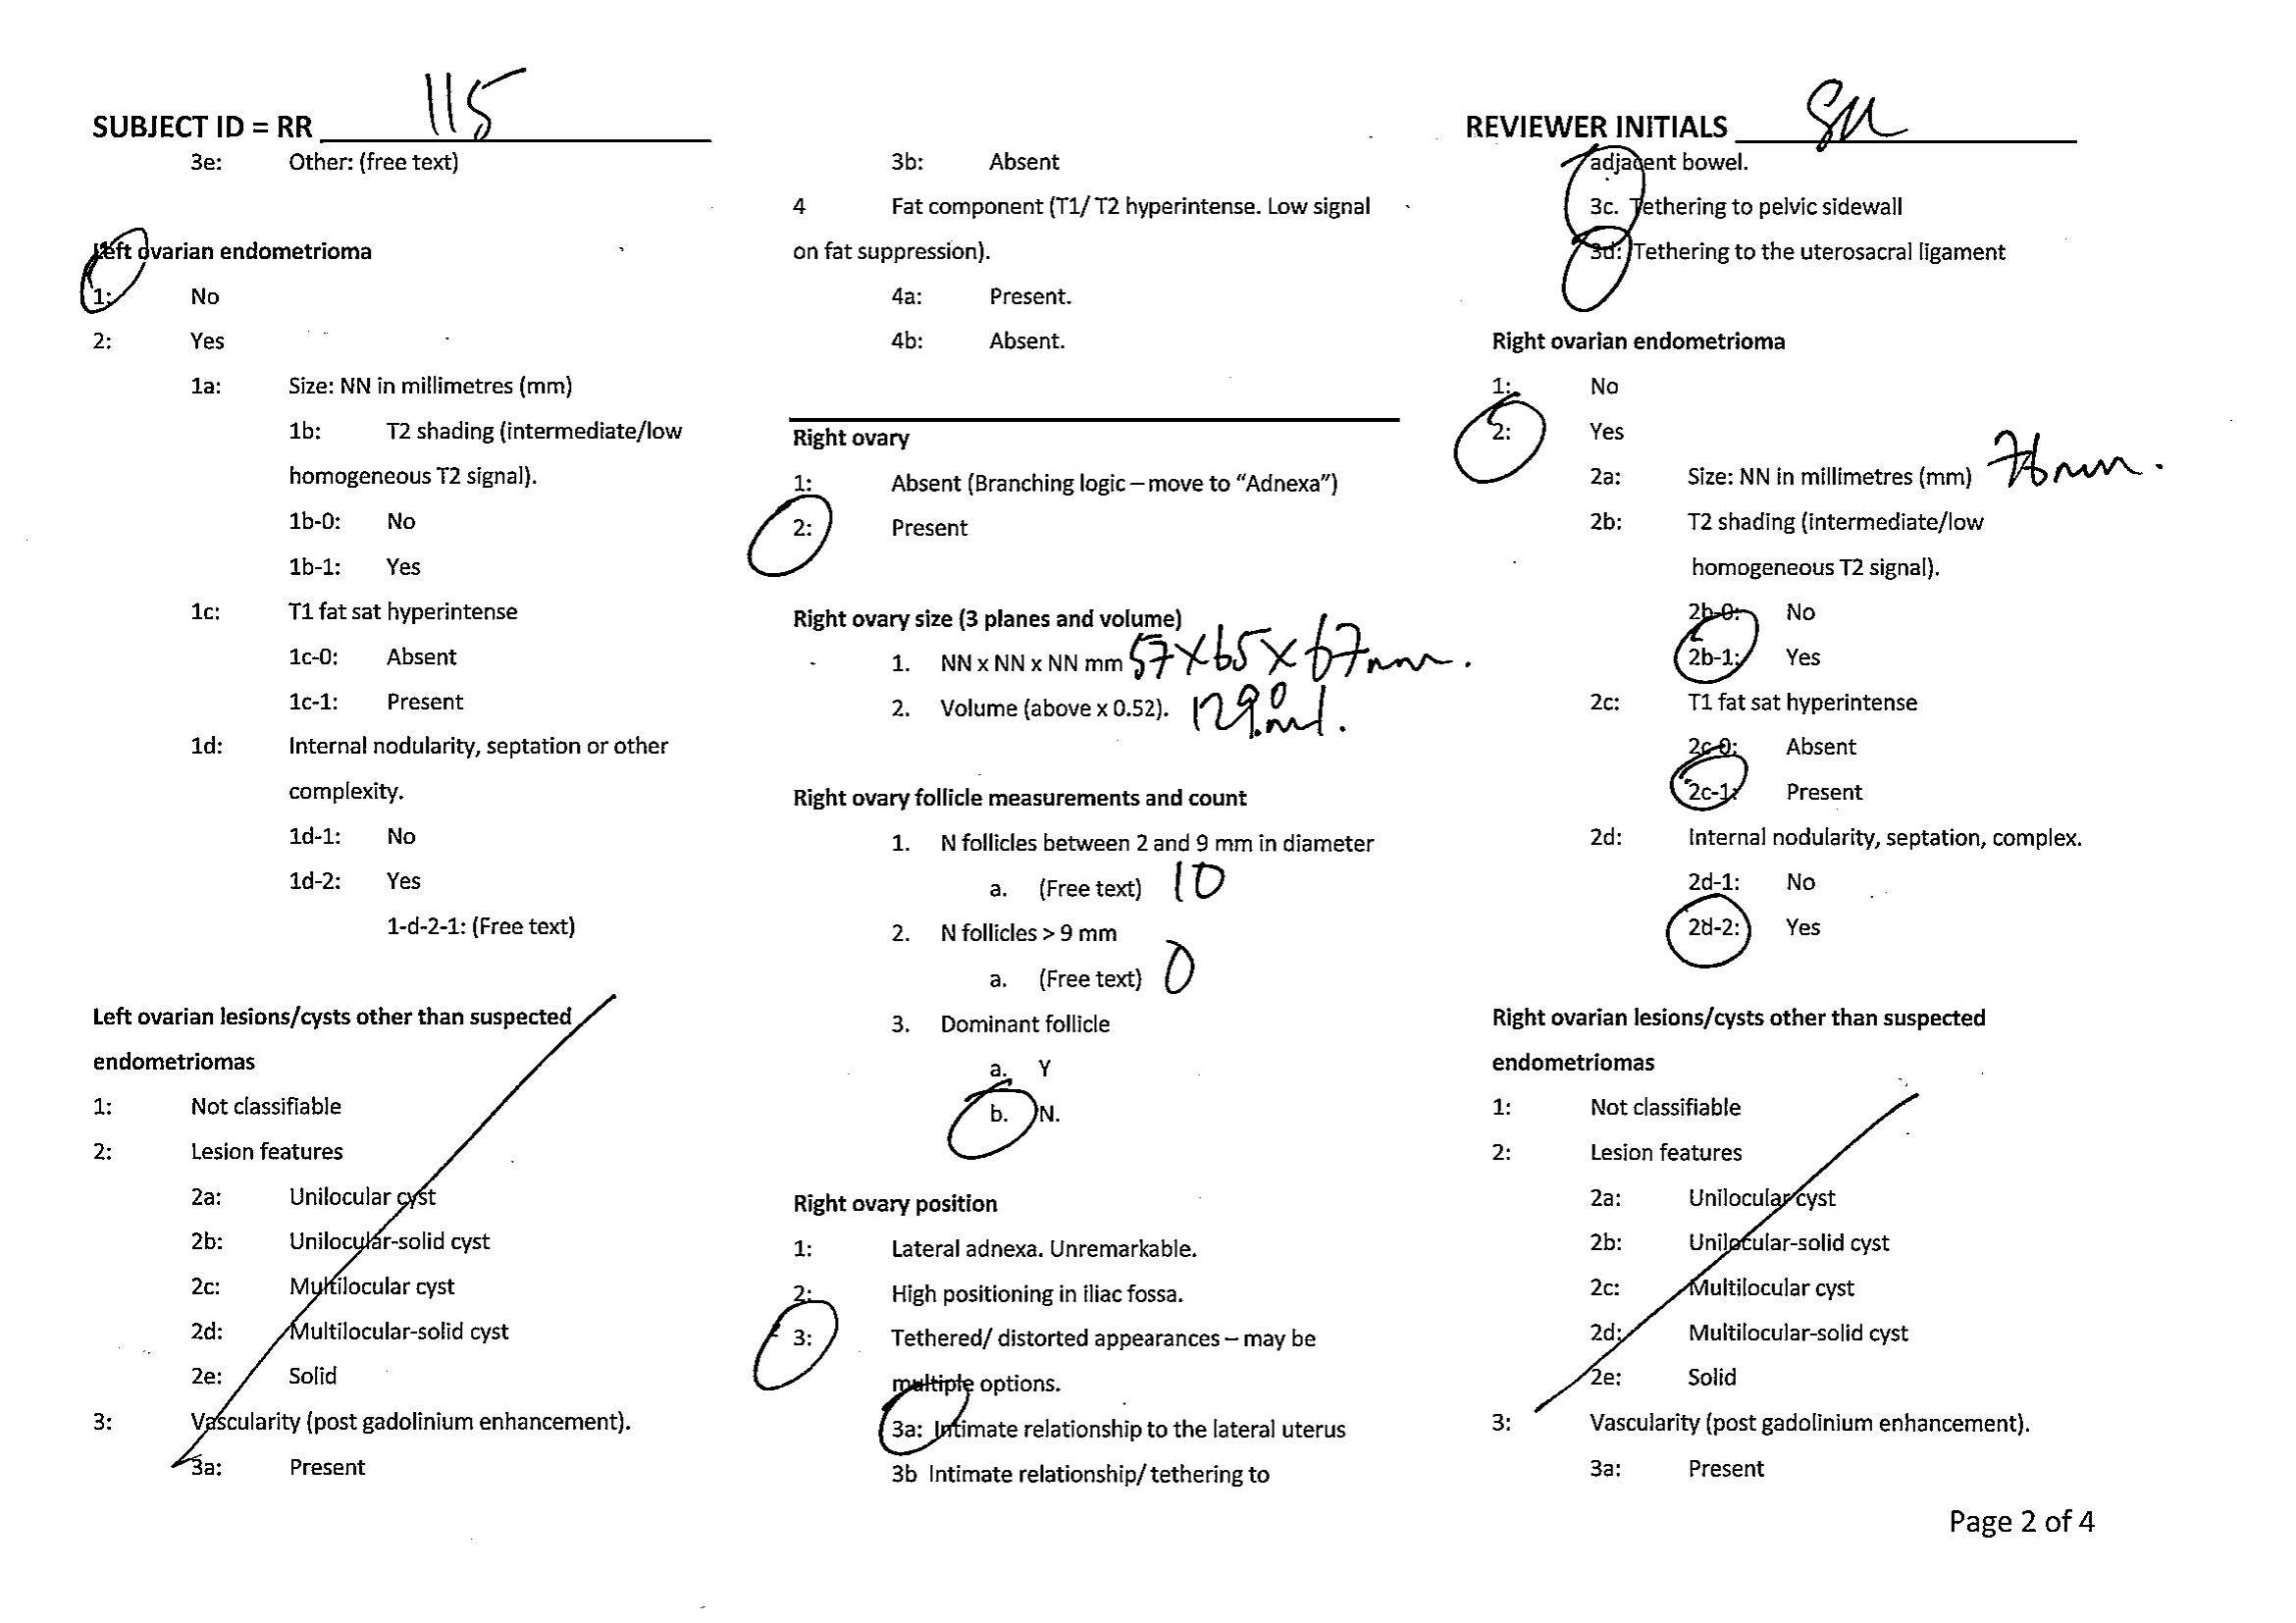 SUBJECT ID = RR 115
3e: Other: (free text)
Left ovarian endometrioma
1: No
2: Yes
1a: Size: NN in millimetres (mm)
1b: T2 shading (intermediate/low
homogeneous T2 signal).
1b-0: No
1b-1: Yes
1c: T1 fat sat hyperintense
1c-0: Absent
1c-1: Present
1d: Internal nodularity, septation or other
complexity.
1d-1: No
1d-2: Yes
1-d-2-1: (Free text)
Left ovarian lesions/cysts other than suspected
endometriomas
1: Not classifiable
2: Lesion features
2a: Unilocular cyst
2b: Unilocular-solid cyst
2c: Multilocular cyst
2d: Multilocular-solid cyst
2e: Solid
3: Vascularity (post gadolinium enhancement).
3a: Present
3b: Absent
4 Fat component (T1/ T2 hyperintense. Low signal
on fat suppression).
4a: Present.
4b: Absent.
Right ovary
1: Absent (Branching logic – move to “Adnexa”)
2: Present
Right ovary size (3 planes and volume)
1. NN x NN x NN mm 57 x 65 x 67mm.
2. Volume (above x 0.52). 129.0ml.
Right ovary follicle measurements and count
1. N follicles between 2 and 9 mm in diameter
a. (Free text) 10
2. N follicles > 9 mm
a. (Free text) 0
3. Dominant follicle
a. Y
b. N.
Right ovary position
1: Lateral adnexa. Unremarkable.
2: High positioning in iliac fossa.
3: Tethered/ distorted appearances – may be
multiple options.
3a: Intimate relationship to the lateral uterus
3b Intimate relationship/ tethering to
REVIEWER INITIALS
adjacent bowel.
3c. Tethering to pelvic sidewall
3d: Tethering to the uterosacral ligament
Right ovarian endometrioma
1: No
2: Yes
2a: Size: NN in millimetres (mm) 76mm.
2b: T2 shading (intermediate/low
homogeneous T2 signal).
2b-0: No
2b-1: Yes
2c: T1 fat sat hyperintense
2c-0: Absent
2c-1: Present
2d: Internal nodularity, septation, complex.
2d-1: No
2d-2: Yes
Right ovarian lesions/cysts other than suspected
endometriomas
1: Not classifiable
2: Lesion features
2a: Unilocular cyst
2b: Unilocular-solid cyst
2c: Multilocular cyst
2d: Multilocular-solid cyst
2e: Solid
3: Vascularity (post gadolinium enhancement).
3a: Present
Page 2 of 4